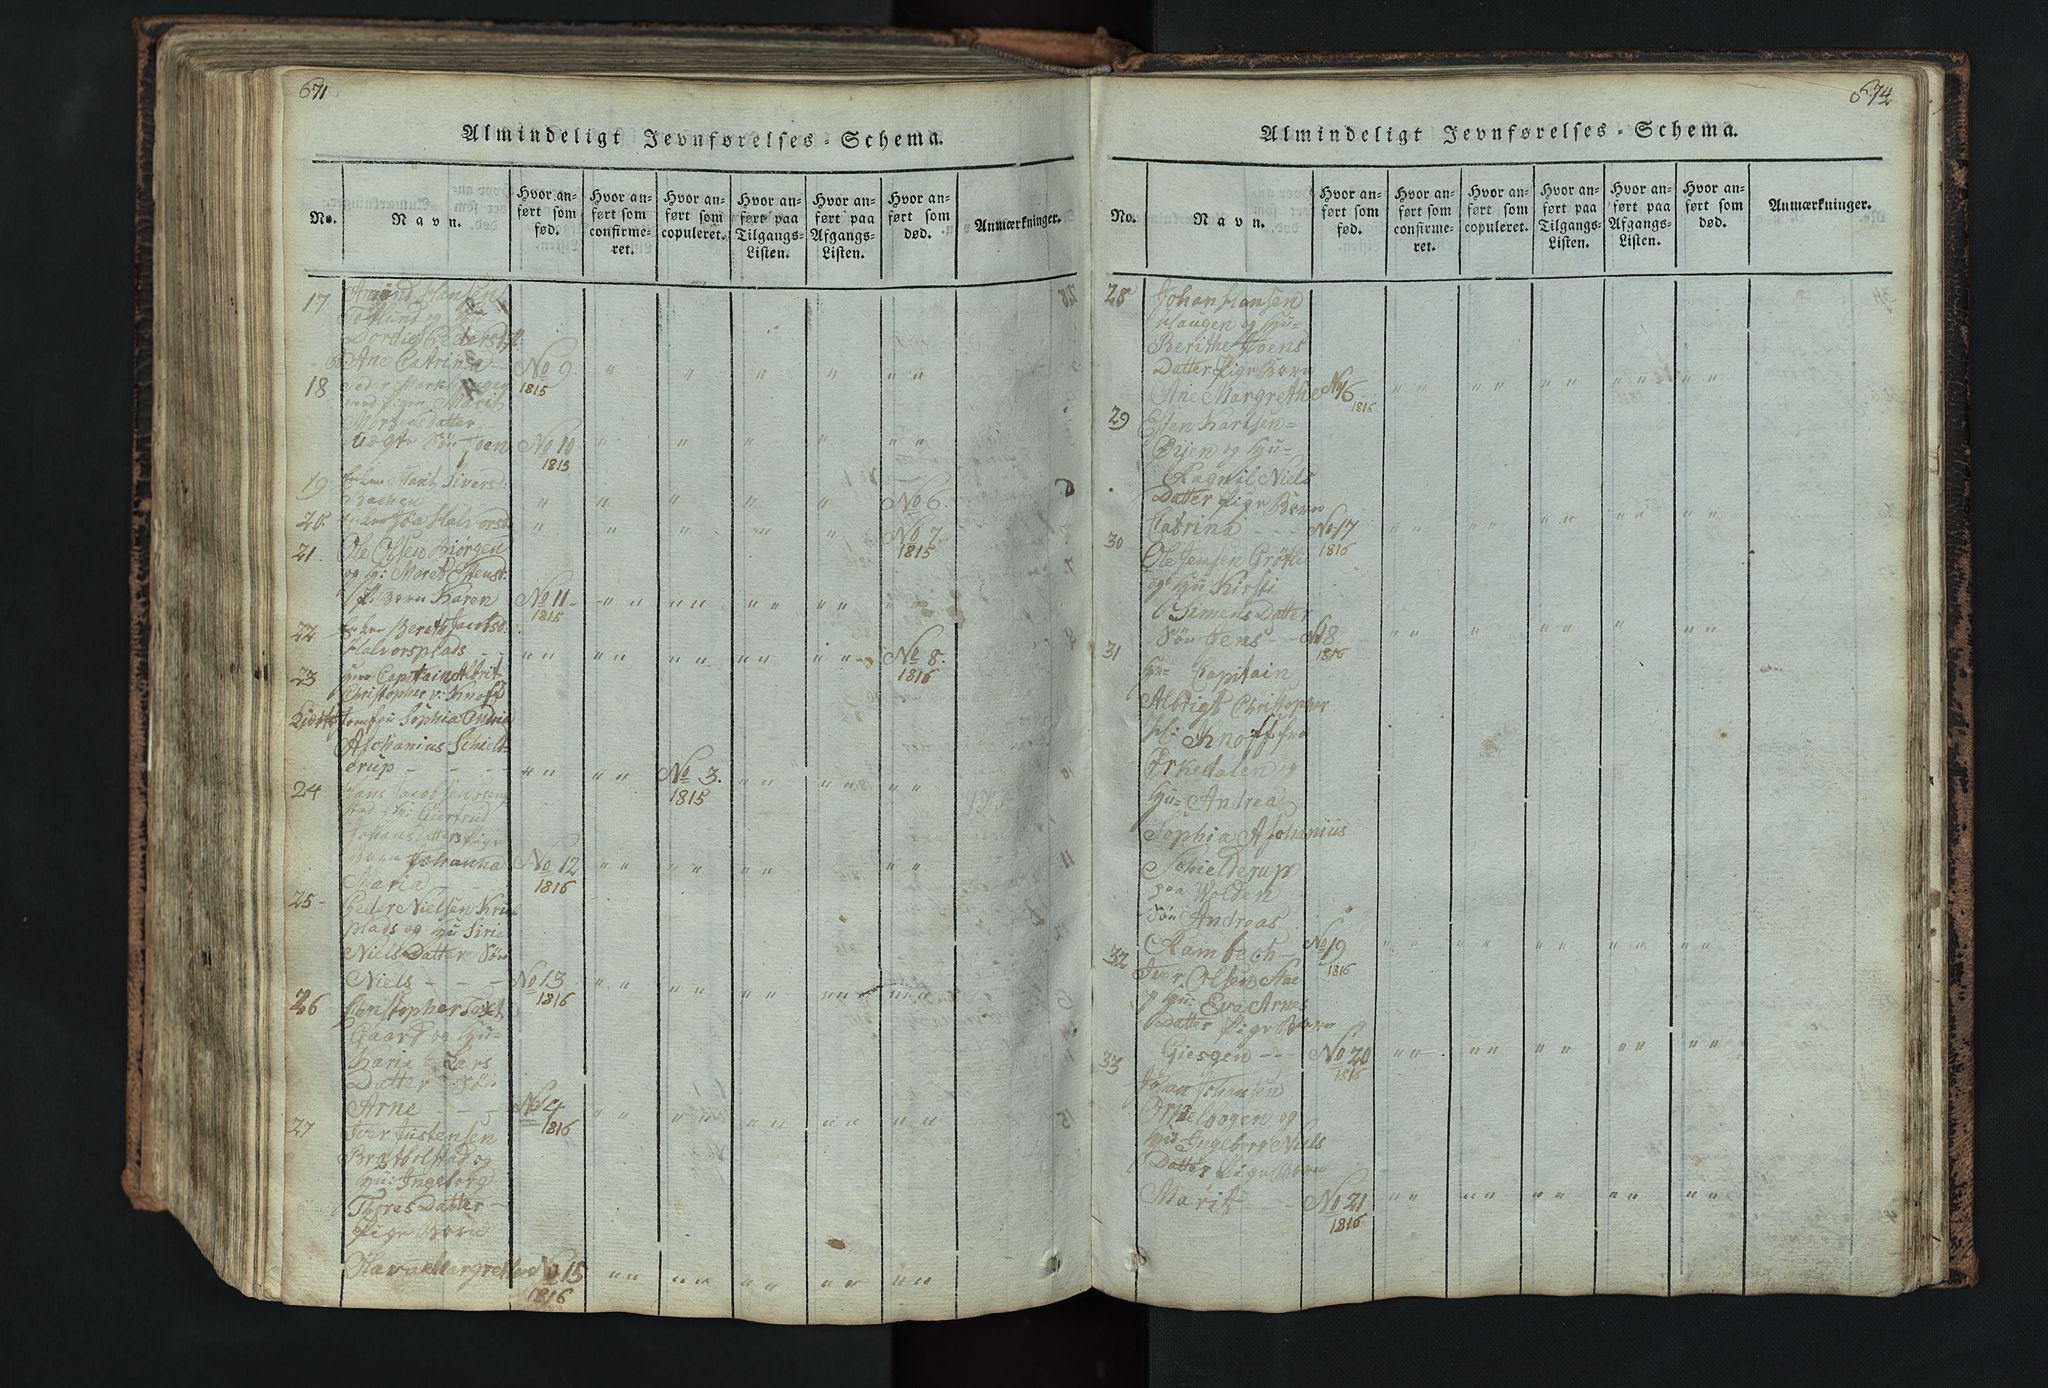 671
Almindeligt Jevnførelses-Schema.
No.
Navn.
Hvor anført som fød.
Hvor anført som confirmeret.
Hvor anført som copuleret.
Hvor anført paa Tilgangs-Listen.
Hvor anført paa Afgangs-Listen.
Hvor anført som død.
Anmærkninger.
17
Hansen
og Hu
Pedersd
Ane Catrina - - No 9. " " " " "
1815
18
Peder
med Pigen Marit
Mortensdatter
uægte Søn Joen No 10 " " " " "
1815
19 Enken Marit Siversd:
Bachen " " " " " No 6.
20 Enken Halvorsd " " " " " No 7.
1815
21. Ole Olsen Biørgen
og H: Maret
P. Barn Karen No 11 - " " " " " " " " " "
1815
22 Enken Bereth Jacobsd:
Halvorsplads - - " " " " " " " " " " No 8.
1816
23 Herr Capitain
Christopher v: Knoff
Jomfru Sophia Andrea
Aschanius Schield-
erup - - - - " " " " No 3. " " " " " "
1815
24 Hans Jacobsen
H: Giertrud
Johansdatters Pige
Barn Johanna No 12 " " " " " " " "
Maria - - 1816
25 - Peder Nielsen
plads og Hu Sirie
Niels Datter Søn
Niels - - - No 13 " " " " " " " " " "
1816
26 Christopher
Gaard og Hu-
Marie Lars
Datter Søn
Arne - - No 14 " " " " " " " " " "
1816
27 Iver Justensen
og
Hu: Ingeborg
Thores Datter -
Pige Barn
Margrethe No 15 " " " " " " " " " "
1816
672
Almindeligt Jevnførelses-Schema.
No.
Navn.
Hvor anført som fød.
Hvor anført som confirmeret.
Hvor anført som copuleret.
Hvor anført paa Tilgangs-Listen.
Hvor anført paa Afgangs-Listen.
Hvor anført som død.
Anmærkninger.
28 Johan Hansen
Haugen og Hu-
Berithe Joens
Datter Pige Barn
Ane Margrethe No 16 " " " " " " " " " "
1816
29 Esten Karlsen-
Øyen og Hu-
Ragnil Niels
Datter Pige Barn
Catrina - - - No 17 " " " " " " " " " "
1816
30 Ole Jensen
og Hu Kirsti
Simens Datter
Søn Jens - - No 18 " " " " " " " "
1816
31 Hr- Capitain
Albrigt Christopher
Knoff fra
Ørkedalen og
Hu- Andrea
Sophia Aschanius
Schielderup
paa Wolden
Søn Andreas
Rambech - No 19 " " " " " " " " " "
1816
32 Iver Olsen Aae
og Hu- Eva Arnes
Datter Pige Barn
Giesgen - - - No 20 " " " " " " " " " "
1816
33 Johan Johansen
og
Hu Ingeborg Niels
Datter Pige Barn
Marit - - - No 21 " " " " " " " " " "
1816